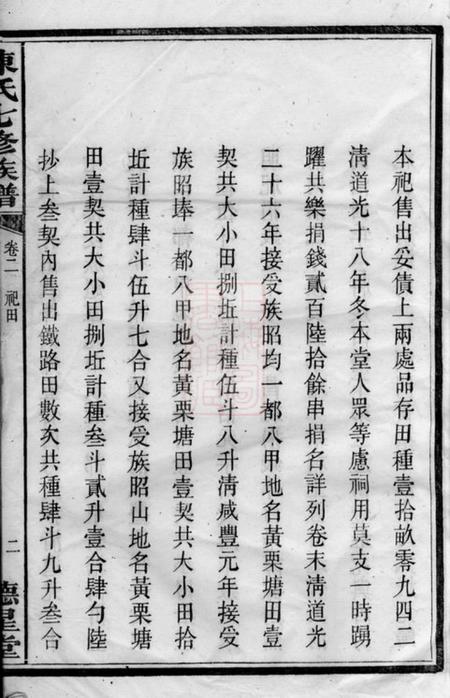 本祀售出妥債上兩處品存田種壹拾畝零九四二
清道光十八年冬本堂人眾等慮祠用莫支一時踴
躍共樂捐錢貳百陸拾餘串捐名詳列卷末清道光
二十六年接受族昭均一都八甲地名黃栗塘田壹
契共大小田捌坵計種伍斗八升清咸豐元年接受
族昭埲一都八甲地名黃栗塘田壹契共大小田拾
坵計種肆斗伍升七合又接受族昭山地名黃栗塘
田壹契共大小田捌坵計種叁斗貳升壹合肆勺陸
抄上叁契內售出鐵路田數次共種肆斗九升叁合
陳氏七修族譜
卷二 祀田
二
德星堂